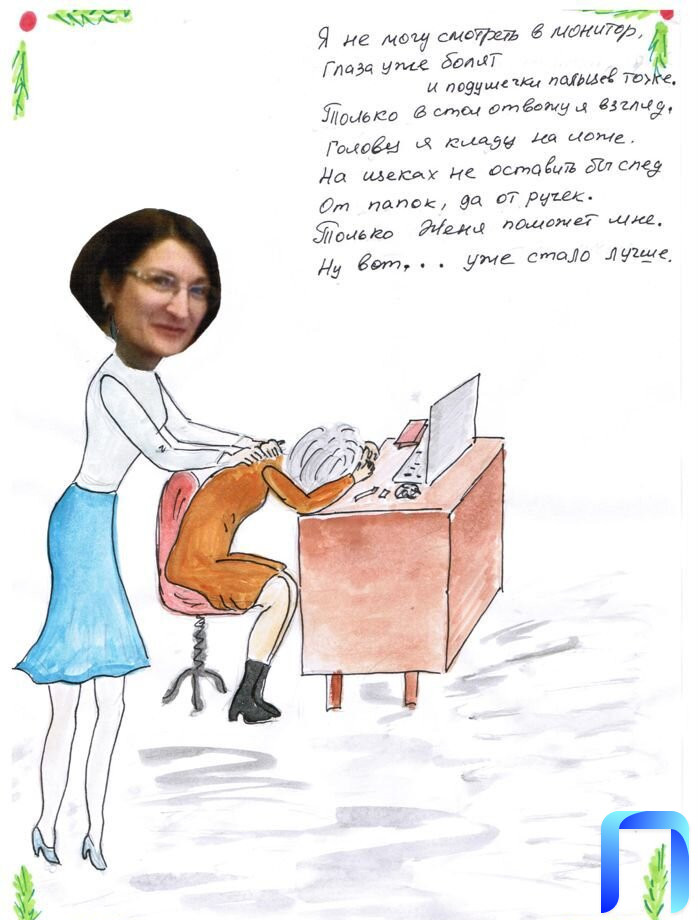 Я не могу смотреть в монитор,
Глаза уже болят
и подушечки пальцев тоже.
Только в стол отвожу я взгляд,
Голову я кладу на ложе.
На щеках не оставить бы след
От папок, да от ручек.
Только Женя поможет мне.
Ну вот,... уже стало лучше.
П